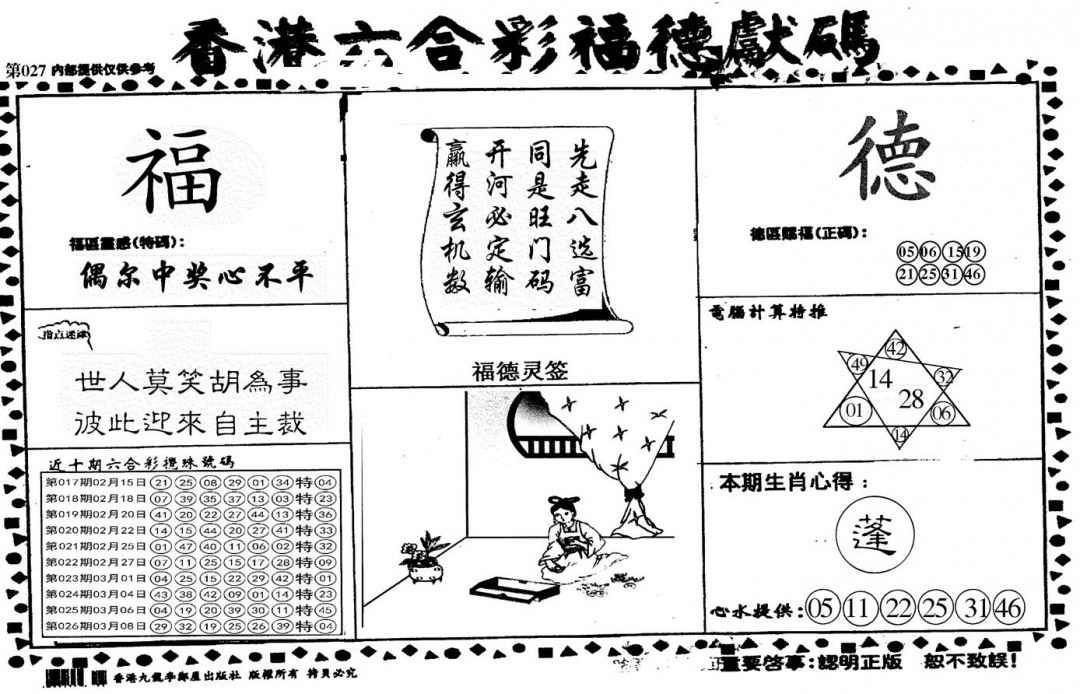 香港六合彩福德獻碼
第027 内部提供仅供参考
福
福區靈感(特碼):
偶尔中奖心不平
指点迷津
世人莫笑胡為事
彼此迎來自主裁
近十期六合彩攪珠號碼
第017期02月15日 21 25 08 29 01 34 特 04
第018期02月18日 07 39 35 37 13 03 特 23
第019期02月20日 41 20 22 27 44 13 特 36
第020期02月22日 14 15 44 20 27 41 特 33
第021期02月25日 01 47 40 11 06 02 特 32
第022期02月27日 07 11 25 15 17 28 特 09
第023期03月01日 04 25 15 22 29 42 特 01
第024期03月04日 43 38 42 09 01 14 特 23
第025期03月06日 04 19 20 39 30 11 特 45
第026期03月08日 29 32 19 25 26 39 特 04
先走八选富
同是旺门码
开河必定输
赢得玄机数
福德灵签
德
德區賜福(正碼):
05 06 15 19
21 25 31 46
電腦計算特推
42
49 32
14
28
01 06
14
本期生肖心得:
蓬
心水提供: 05 11 22 25 31 46
香港九龍李鄭屋出版社 版權所有 拷貝必究
重要啓事:認明正版 恕不致誤!